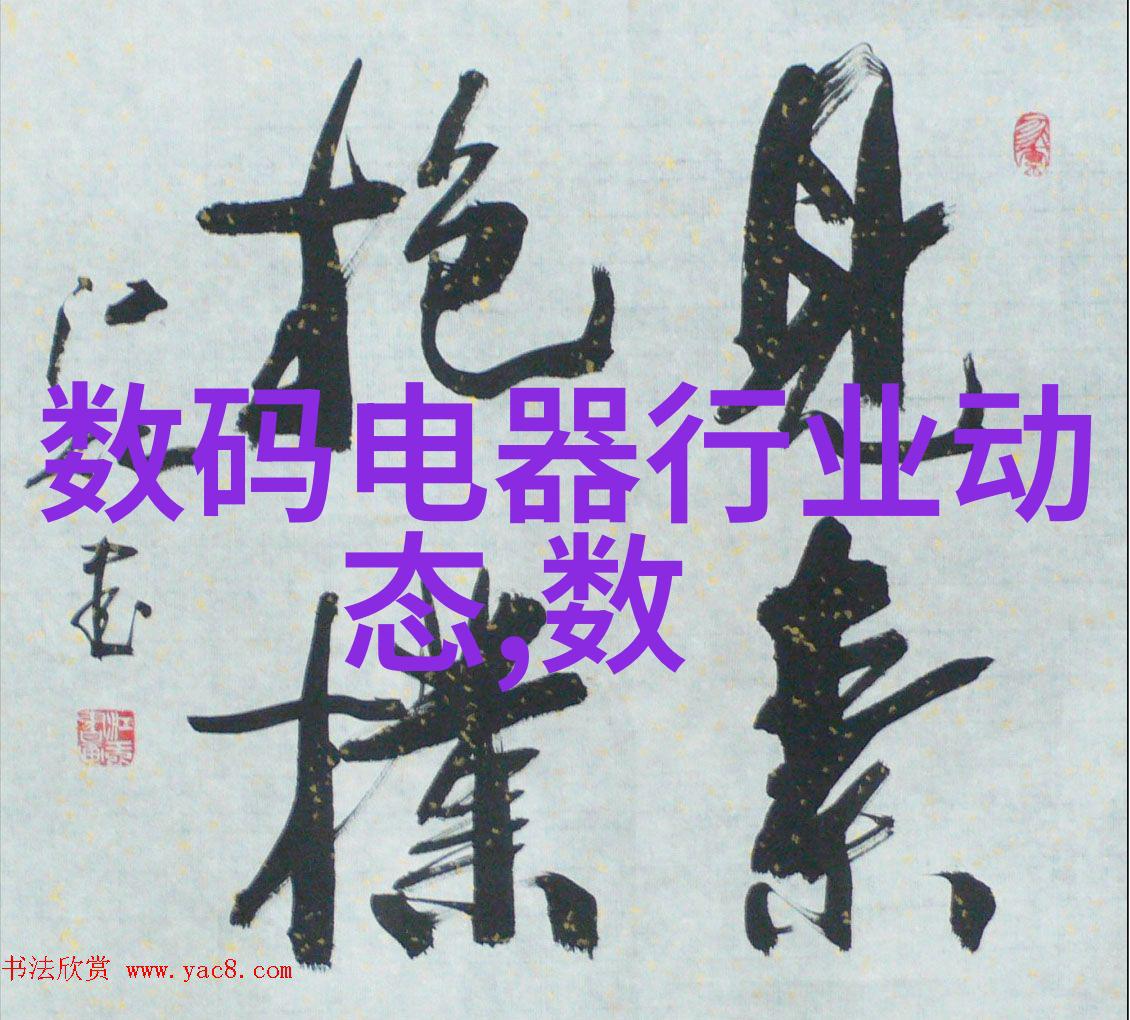 見素
抱樸
数码电器行业动
态,数
书法欣赏 www.yac8.com